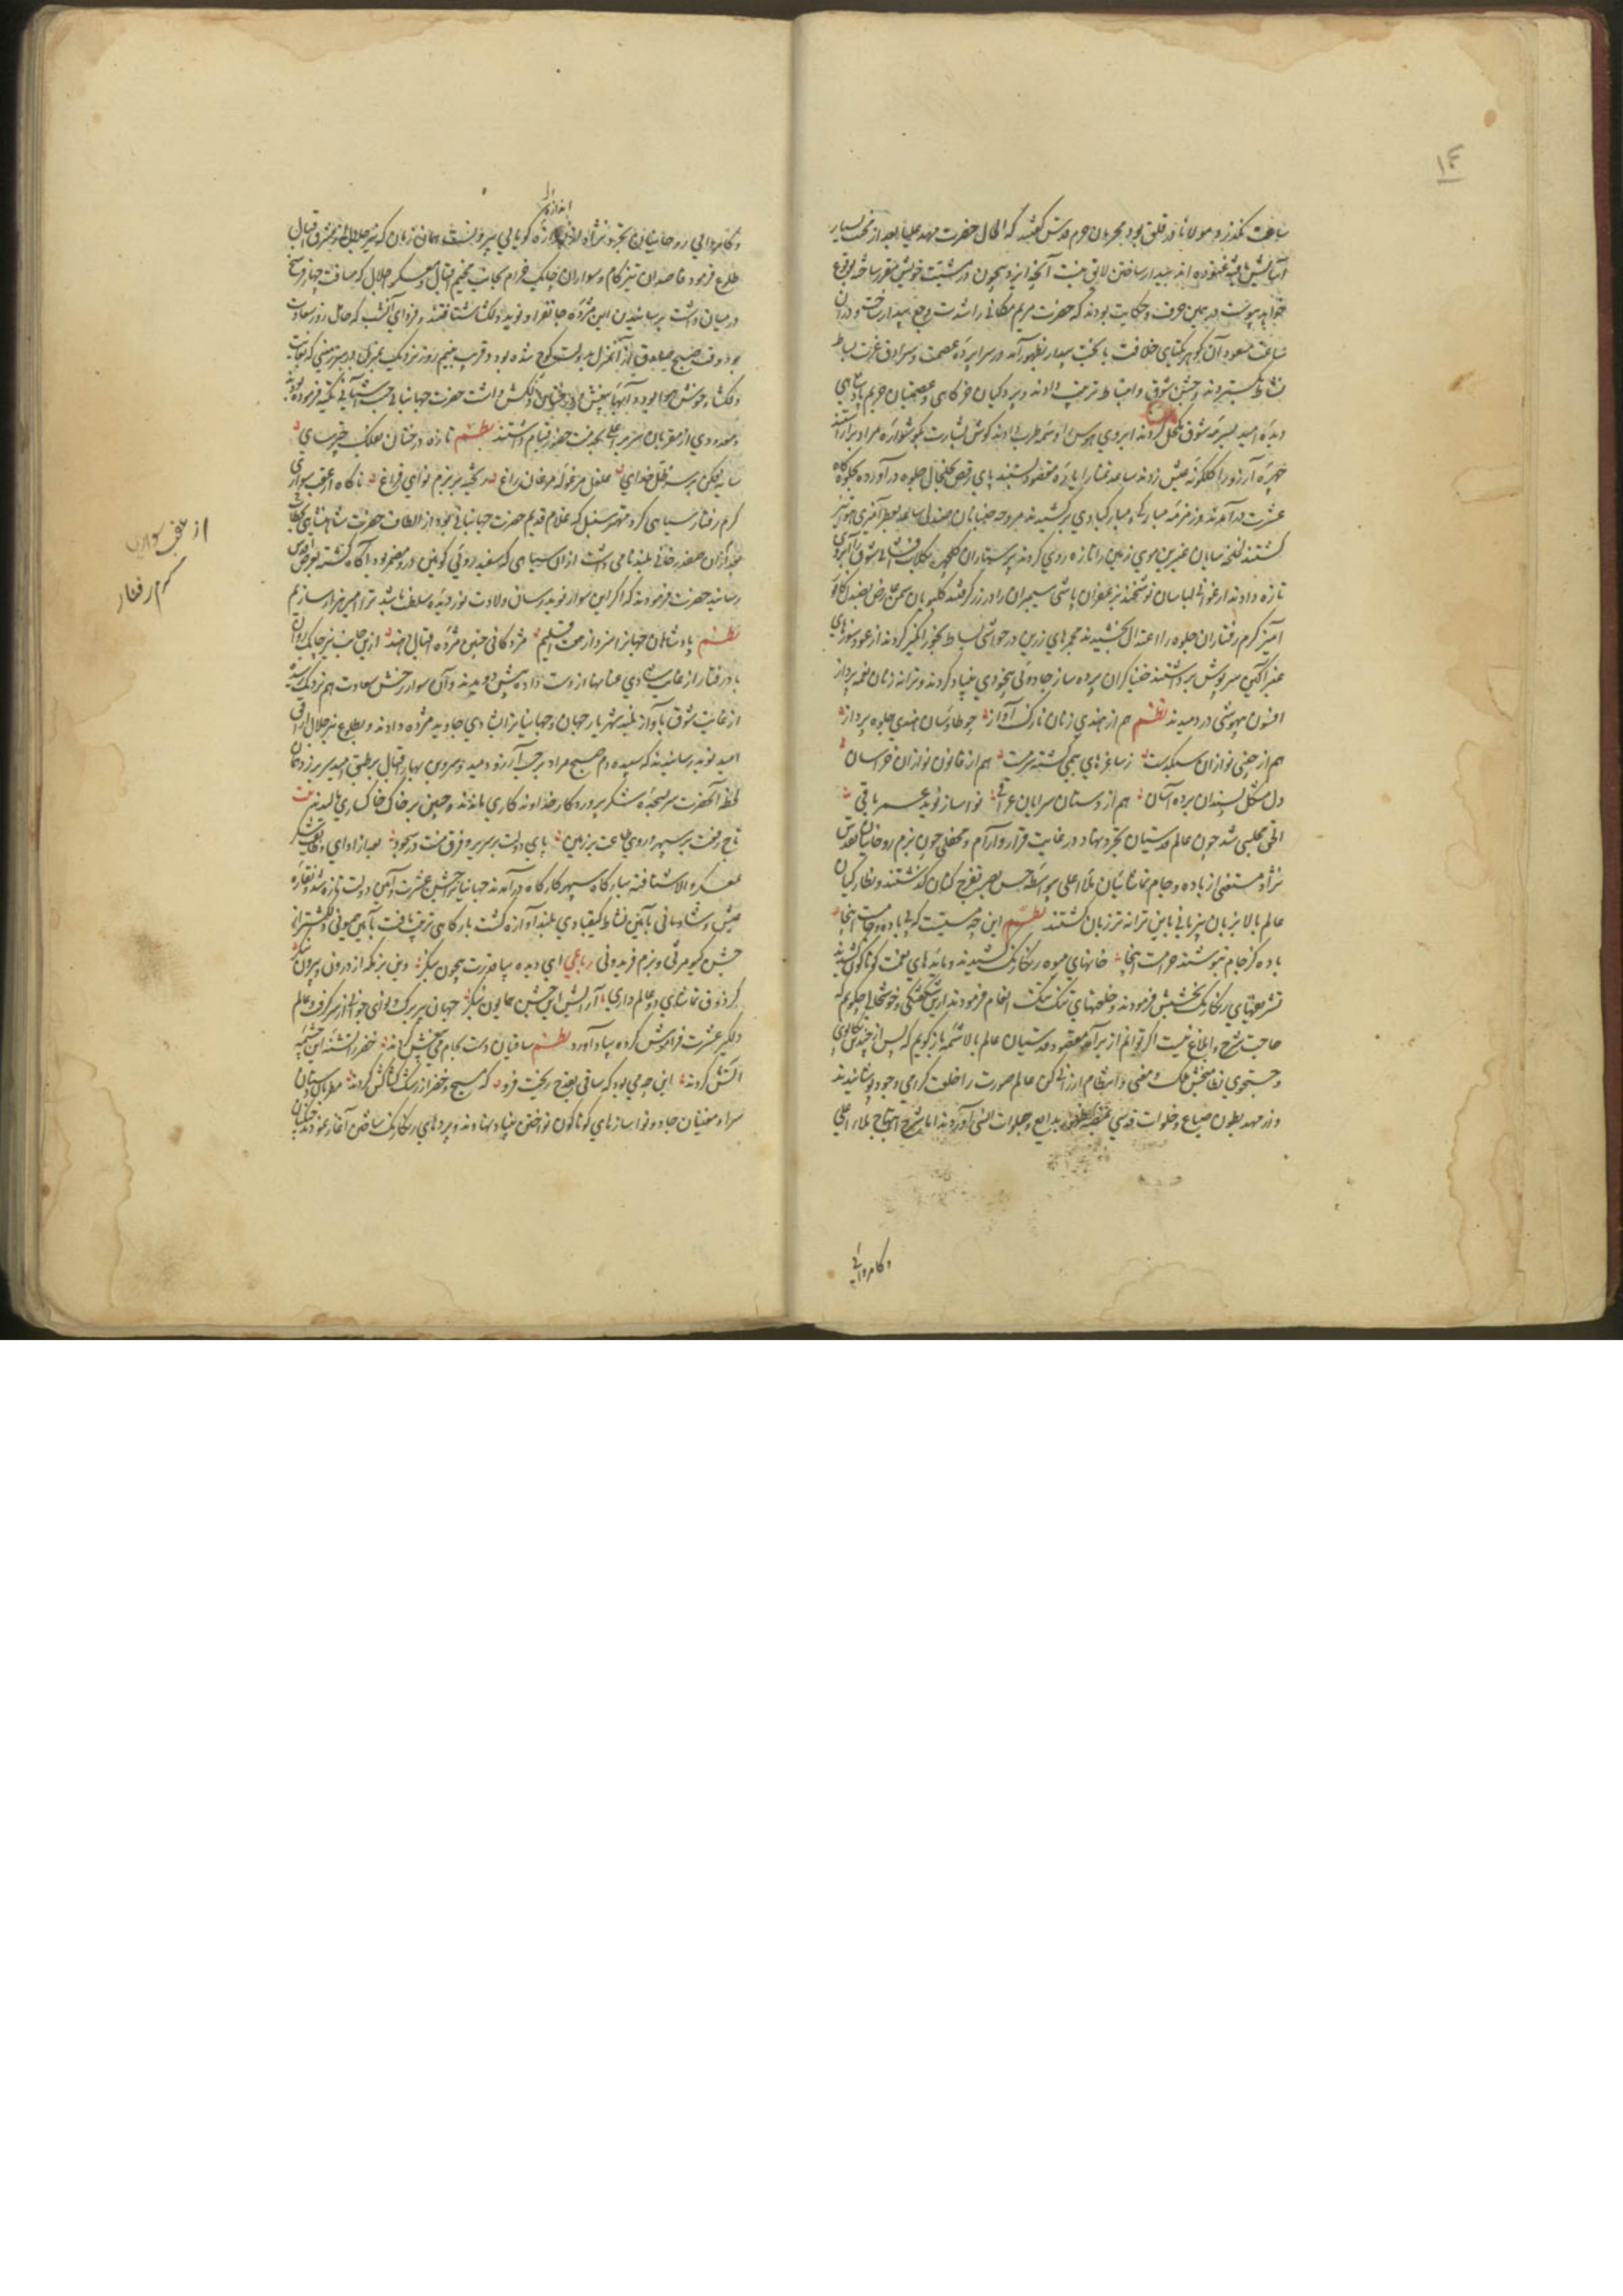 ١٤
ساعت نگذرد و مولانا در قلق بود بمحرمان حرم قدس گفتند که الحال حضرت مهد علیا بعد از محنت بسیار
آسایش غنوده اند بیدار ساختن لایق نیست آنچه ایزد بیچون در مشیت خویش مقرر ساخته بوقوع
خواهد پیوست در همین حرف و حکایت بودند که حضرت مریم مکانی را شدت وجع بیدار ساخت و دران
ساعت مسعود آن گوهر یکتای خلافت با بخت بیدار بظهور آمد در سراپرده عصمت و سرادق عزت بساط
نشاط گستردند و جشن شوق و انبساط ترتیب دادند و پردگیان خرگاهی و عصمتیان حریم پادشاهی
دیده امید بسرمه شوق مکحل کردند ابروی هوس را وسمه طرب دادند گوش بشارت بگوشواره مراد بر آراستند
چهره آرزو را گلگونه عیش زدند ساعد تمنا را یاره مقصود بستند پای رقص بخلخال جلوه در آورده بجلوه گاه
عشرت در آمدند و زمزمه مبارکی و مبارکبادی بر کشیدند مروحه جنبانان صندلی ساعد بعطر آمیزی هوا
گشتند غالیه سایان عنبرین موی زمین را تازه روی کردند پرستاران گلچهره بگلاب فشانی شوق را آبروی
تازه دادند ارغوانی لباسان نوشخند بزعفران پاشی سیمبران را در زر گرفتند گلبویان سمن عارض بصندل کافور
آمیز گرم رفتاران جلوه را اعتدال بخشیدند مجمرهای زرین در حواشی بساط بخور انگیز کردند از عود سوزهای
عنبر آگین سرپوش برداشتند خنیاگران پرده ساز جادوئی بیخودی بنیاد کردند و ترانه زنان نغمه پرداز
افسون بیهوشی در دمیدند نظم هم از هندی زنان نازک آواز چو طاوسان هندی جلوه پرداز
هم از چینی نوازان سبکدست ز ساغرهای بیمی گشته سرمست هم از قانون نوازان خراسان
دل مشکل پسندان برده آسان هم از دستان سرایان عراقی نوا ساز نوید عمر باقی
الحق مجلسی شد چون عالم قدسیان تجرد نهاد در غایت قرار و آرام و محفلی چون بزم روحانیان تقدس
نژاد مستغنی از باده و جام تماشائیان ملأ اعلی بواسطه حس بصر تفرج کنان گذشتند و نظارگیان
عالم بالا بزبان بیزبانی باین ترانه تر زبان گشتند نظم این چه مستیست که بی باده و جامست اینجا
باده کز جام بنوشند حرامست اینجا خوانهای میوه رنگارنگ کشیدند و مائدهای نعمت گوناگون کشیدند
تشریفهای رنگارنگ بخشش فرمودند و خلعتهای تنگ تنگ انعام فرمودند ازین شگفتگی و خوشحالی چگویم که
حاجت شرح و ابلاغ نیست اگر توانم از بر آمد مقصود قدسیان عالم بالا شمه باز گویم که پس از چندین تکاپوی
و جستجوی نظام بخش ملک و معنی و انتظام ارزانی کن عالم صورت را خلعت گرامی وجود پوشانیدند
و از مهد بطون صنایع و خلوات قدسی بمنصه ظهور بدایع و جلوات انسی آوردند اما شرح ابتهاج ملاء اعلی
و کامروائی
اندازه
و کامروایی روحانیان تجرد نژاد اندازه گویایی بیرونست همان زمان که نیر جلال از مشرق اقبال
طلوع فرمود قاصدان تیز گام و سواران چابک خرام بجانب مخیم اقبال و معسکر جلال که مسافت چهار فرسخ
در میان داشت برسانیدن این مژده جانفزا و نوید دلکشا شتافتند و فردای آنشب که حامل روز سعادت
بود وقت صبح صادق از آنمنزل بدولت کوچ شده بود و قریب بنیم روز نزدیک بمنزلی در سرزمینی که بغایت
دلکشا و خوش هوا بود و آبهای خوش و درختان دلکش داشت حضرت جهانبانی جنت آشیانی تکیه فرموده بودند
و معدودی از مقربان سریر اعلی بخدمت حضور قیام داشتند نظم تازه درختان فلک چتر سای
سایه فکن بر سر ظل خدای غلغل مرغوله مرغان زراغ بخت بر بزم نوای فراغ ناگاه از عقب سواری
گرم رفتار سیاهی کرد مهتر سنبل که غلام قدیم حضرت جهانبانی بود و از الطاف حضرت شاهنشاهی بخطاب
بعد از ان صفدر خانی بلند نامی داشت از ان سیاهی که سفید روئی کونین درو مضمر بود آگاه گشته بعرض اقدس
رسانید حضرت فرمودند که اگر این سوار نوید رسان ولادت نور دیده سلطنت باشد ترا امیر هزاره سازیم
نظم پادشاهان جهان را سزد از هفت اقلیم مژدگانی چنین مژده اقبال دهند ازین جانب نیز چابک روان
باد رفتار از غایت شادی عنانها از دست داده پیش دویدند و آن سوار رخش سعادت هم نزدیک رسیده
از غایت شوق بآواز بلند شهریار جهان و جهانیانرا شادی جاوید مژده دادند و بطلوع نیر جلال از افق
امید نوید رسانیدند که سپیده دم صبح مراد بر حسب آرزو دمید و سروبن بهار اقبال بر طبق امید سر بر زد همان
لحظه آنحضرت سر بسجده شکر پروردگار خداوند کاری ماندند و جبین بر خاک خاکساری مالیدند بیت
تاج رفعت بر سپهر و روی طاعت بر زمین پای دولت بر سریر و فرق منت در سجود بعد از ادای وظایف شکر
بمعسکر والا شتافته ببارگاه سپهر کارگاه در آمدند جهانیانرا جشن عشرت و آیین دولت تازه شد و نقاره
عیش و شادمانی بآیین نشاط کیقبادی بلند آوازه گشت بارگاهی ترتیب یافت بآیین همیونی دلگشتر از
جشن کیومرثی و بزم فریدونی رباعی ای دیده بیا قدرت بیچون بنگر وین بزمگه از درون و بیرون بنگر
گر ذوق تماشای دو عالم داری آرایش این جشن همایون بنگر جهان پیر برگ و نوای جوانی از سر گرفت و عالم
دلگیر عشرت فراموش کرده بیاد آورد نظم ساقیان دست بجام می بیغش کردند خضر را تشنه این چشمه
آتش کردند این چه می بود که ساقی بقدح ریخت فرو که مسیح و خضر از رشک کشاکش کردند مطربان دستان
سرا و مغنیان جادو نوا سازهای گوناگون نواختن بنیاد نهادند و پردهای رنگارنگ ساختن آغاز نمودند چنگیان
از عقب سواری
گرم رفتار